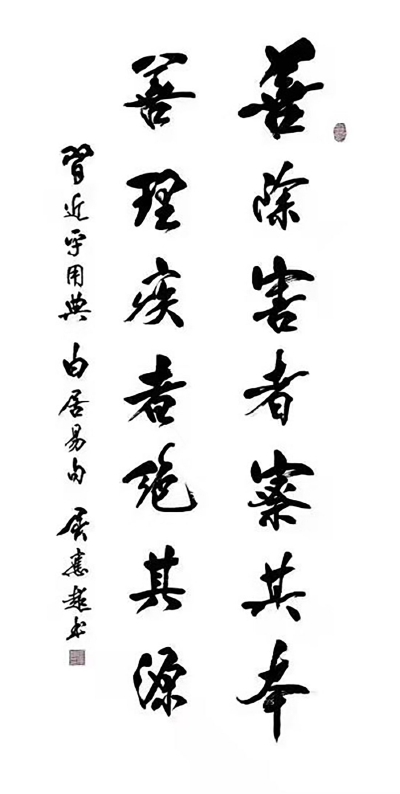 善除害者察其本
善理疾者绝其源
习近平用典 白居易句 展惠超书